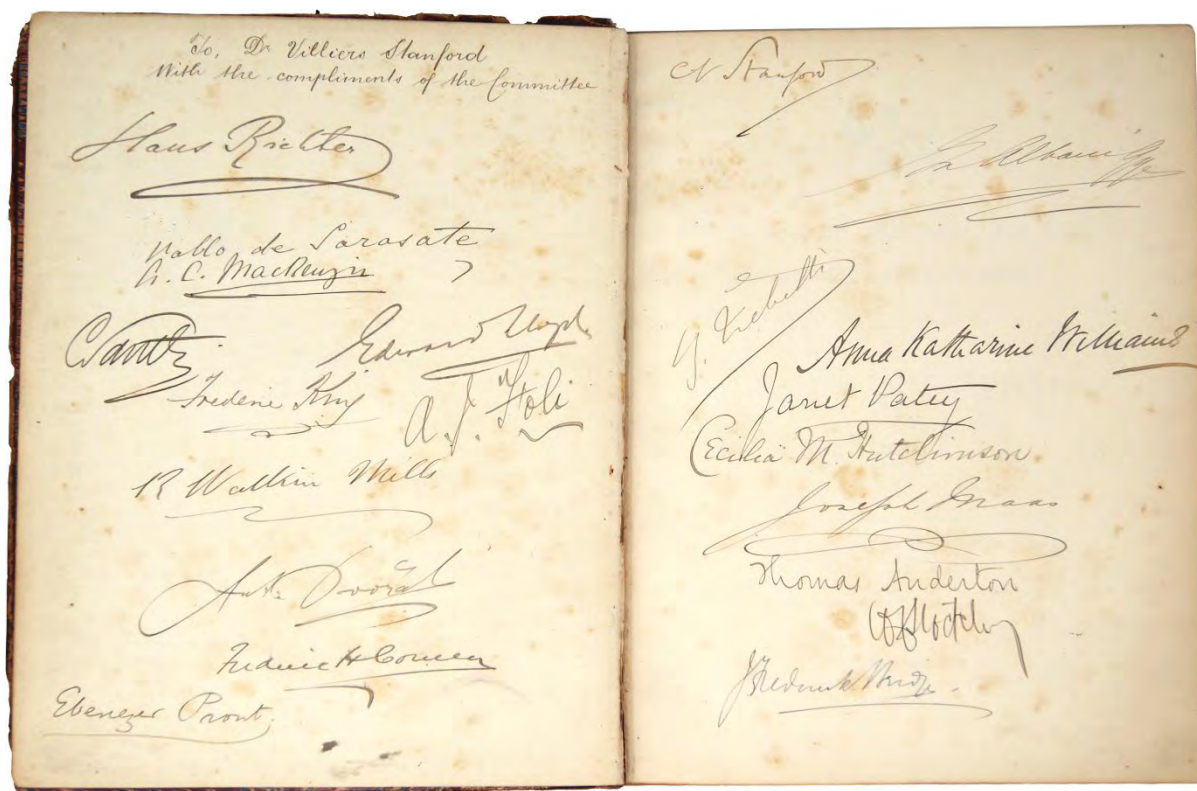 To, Dr Villiers Stanford
With the compliments of the Committee
Hans Richter
Pablo de Sarasate
A. C. Mackenzie
C Santley
Edward Lloyd
Frederic King
A. J. Foli
R Watkin Mills
Ant. Dvořák
Frederic H Cowen
Ebenezer Prout.
CV Stanford
Albani
Anna Katharine Williams
Janet Patey
Cecilia M. Hutchinson
Joseph Maas
Thomas Anderton
J Frederick Bridge.